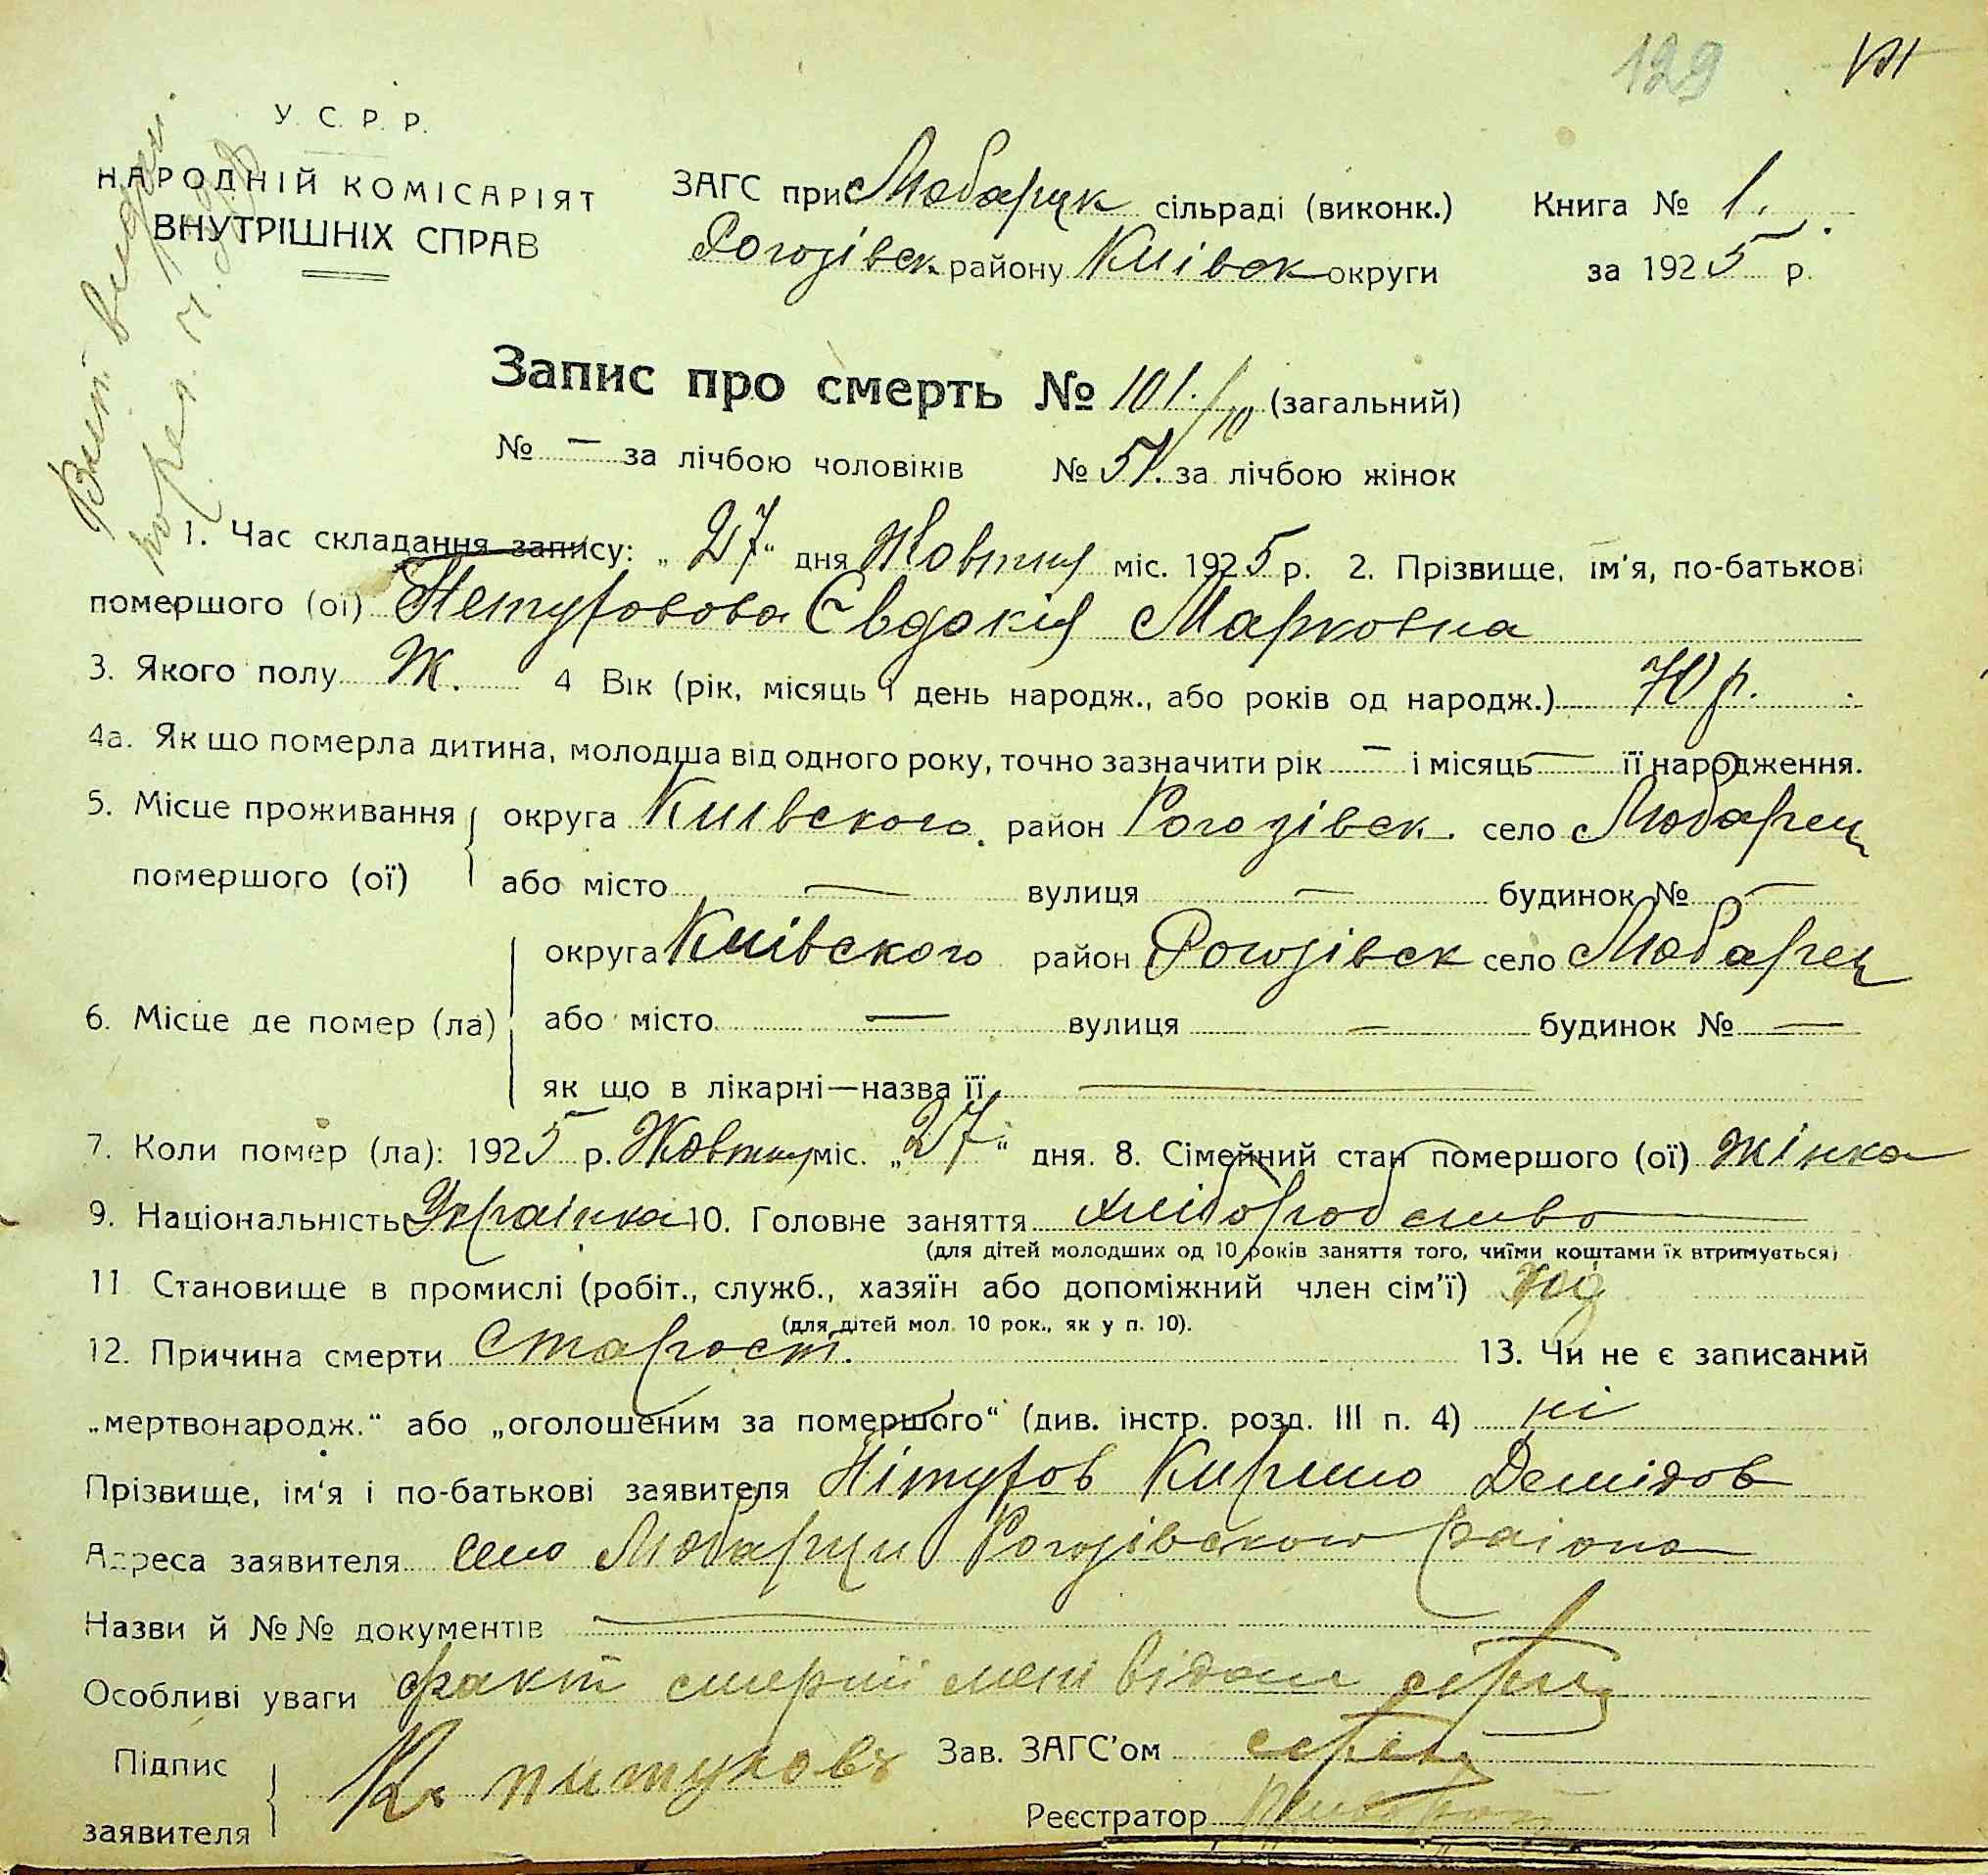 129
У. С. Р. Р.
НАРОДНІЙ КОМІСАРІЯТ
ВНУТРІШНІХ СПРАВ
ЗАГС при Любарцк сільраді (виконк.)
Рогозівск району Київск округи
Книга № 1.
за 1925 р.
Запис про смерть № 101./10 (загальний)
№ — за лічбою чоловіків № 51. за лічбою жінок
1. Час складання запису: „27“ дня Жовтня міс. 1925 р. 2. Прізвище, ім'я, по-батькові
помершого (ої) Євдокія Марковна
3. Якого полу Ж. 4 Вік (рік, місяць і день народж., або років од народж.) 70 р.
4а. Як що померла дитина, молодша від одного року, точно зазначити рік — і місяць — її народження.
5. Місце проживання помершого (ої) округа Київского район Рогозівск. село Любарец
або місто — вулиця — будинок № —
6. Місце де помер (ла) округа Київского район Рогозівск село Любарец
або місто — вулиця — будинок № —
як що в лікарні—назва її —
7. Коли помер (ла): 1925 р. Жовтня міс. „27“ дня. 8. Сімейний стан помершого (ої) жінка
9. Національність Українка 10. Головне заняття хліборобство
(для дітей молодших од 10 років заняття того, чиїми коштами їх втримується)
11 Становище в промислі (робіт., служб., хазяїн або допоміжний член сім'ї)
(для дітей мол. 10 рок., як у п. 10).
12. Причина смерти Старост. 13. Чи не є записаний
„мертвонародж.“ або „оголошеним за помершого“ (див. інстр. розд. III п. 4) ні
Прізвище, ім'я і по-батькові заявителя Кирило Демідов
Адреса заявителя село Любарци Рогозівского району
Назви й №№ документів —
Особливі уваги факт смерти мені відом
Підпис заявителя К. питуховъ
Зав. ЗАГС'ом
Реєстратор